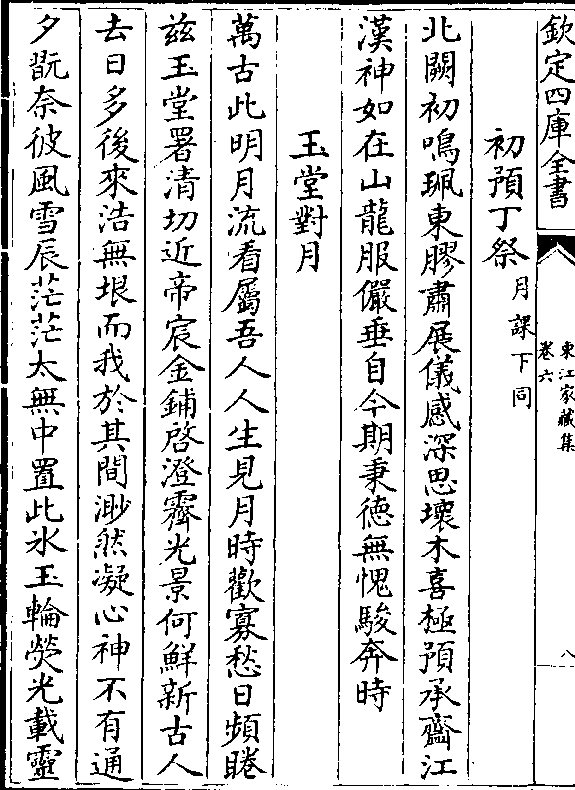 欽定四庫全書
東江家藏集
卷六
八
初預丁祭月課下同
北闕初鳴珮東膠肅展儀感深思壞木喜極預承齋江
漢神如在山龍服儼垂自今期秉德無愧駿奔時
玉堂對月
萬古此明月流看屬吾人人生見月時歡寡愁日頻睠
兹玉堂署清切近帝宸金鋪啓澄霽光景何鮮新古人
去日多後來浩無垠而我於其間渺然凝心神不有通
夕翫奈彼風雪辰茫茫太無中置此氷玉輪熒光載靈